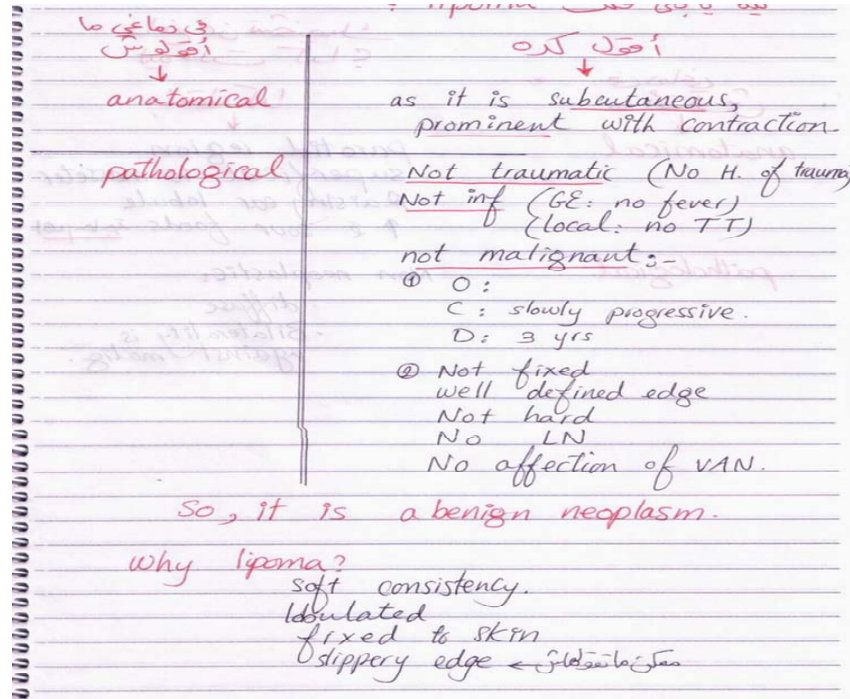 lipoma
في دماغي ما أقولوش
أقول كده
anatomical
as it is subcutaneous,
prominent with contraction.
pathological
Not traumatic (No H. of trauma)
Not inf (GE: no fever)
(local: no TT)
not malignant:-
① O:
C: slowly progressive.
D: 3 yrs
② Not fixed
well defined edge
Not hard
No LN
No affection of VAN.
So, it is a benign neoplasm.
Why lipoma?
soft consistency.
lobulated
fixed to skin
slippery edge ← ممكن ماتقولهاش